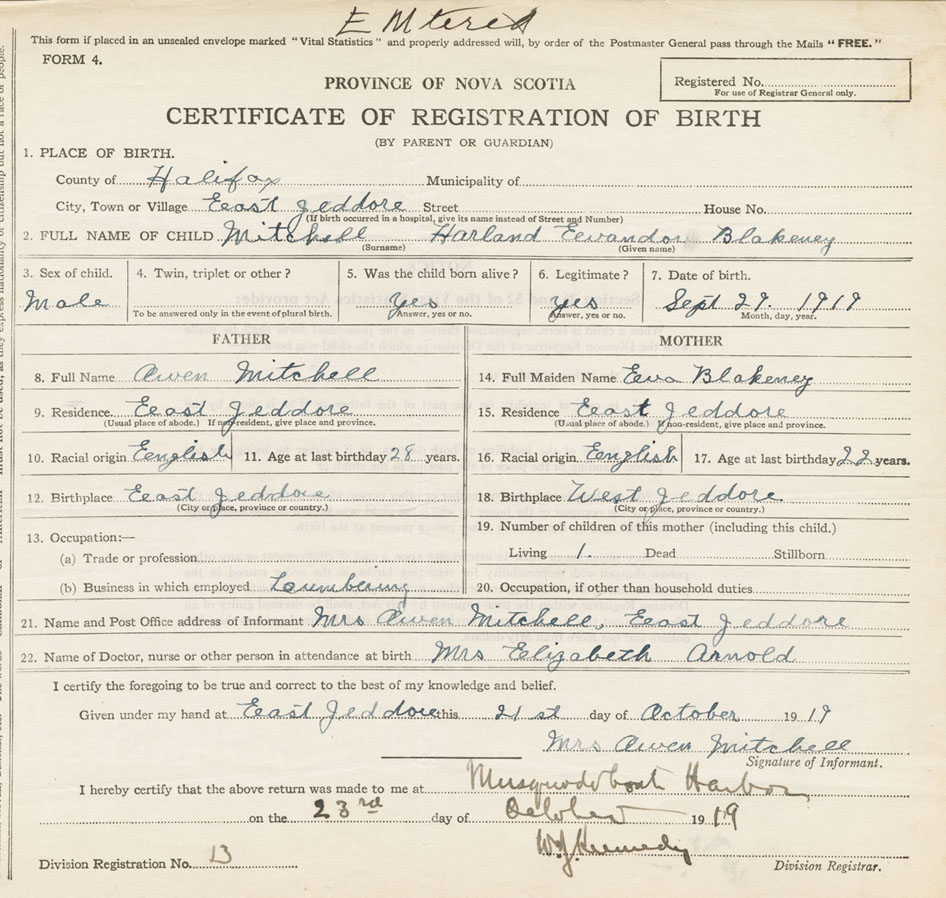 Entered
This form if placed in an unsealed envelope marked "Vital Statistics" and properly addressed will, by order of the Postmaster General pass through the Mails "FREE."
FORM 4.
Registered No.
For use of Registrar General only.
PROVINCE OF NOVA SCOTIA
CERTIFICATE OF REGISTRATION OF BIRTH
(BY PARENT OR GUARDIAN)
1. PLACE OF BIRTH.
County of Halifax Municipality of
City, Town or Village East Jeddore Street House No.
(If birth occurred in a hospital, give its name instead of Street and Number)
2. FULL NAME OF CHILD Mitchell Harland Evandor Blakeney
(Surname) (Given name)
3. Sex of child. 4. Twin, triplet or other? 5. Was the child born alive? 6. Legitimate? 7. Date of birth.
Male Yes yes Sept 29. 1919
To be answered only in the event of plural birth. Answer, yes or no. Answer, yes or no. Month, day, year.
FATHER MOTHER
8. Full Name Owen Mitchell 14. Full Maiden Name Eva Blakeney
9. Residence. East Jeddore 15. Residence East Jeddore
(Usual place of abode.) If non-resident, give place and province. (Usual place of abode.) If non-resident, give place and province.
10. Racial origin English 11. Age at last birthday 28 years. 16. Racial origin English 17. Age at last birthday 22 years.
12. Birthplace East Jeddore 18. Birthplace West Jeddore
(City or place, province or country.) (City or place, province or country.)
19. Number of children of this mother (including this child.)
13. Occupation:—
(a) Trade or profession Living 1. Dead Stillborn
(b) Business in which employed Lumbering 20. Occupation, if other than household duties
21. Name and Post Office address of Informant Mrs Owen Mitchell, East Jeddore
22. Name of Doctor, nurse or other person in attendance at birth Mrs Elizabeth Arnold
I certify the foregoing to be true and correct to the best of my knowledge and belief.
Given under my hand at East Jeddore this 21st day of October 1919
Mrs Owen Mitchell
Signature of Informant.
I hereby certify that the above return was made to me at Musquodoboit Harbor
on the 23rd day of October 1919
W. J. Kennedy
Division Registration No. 13 Division Registrar.